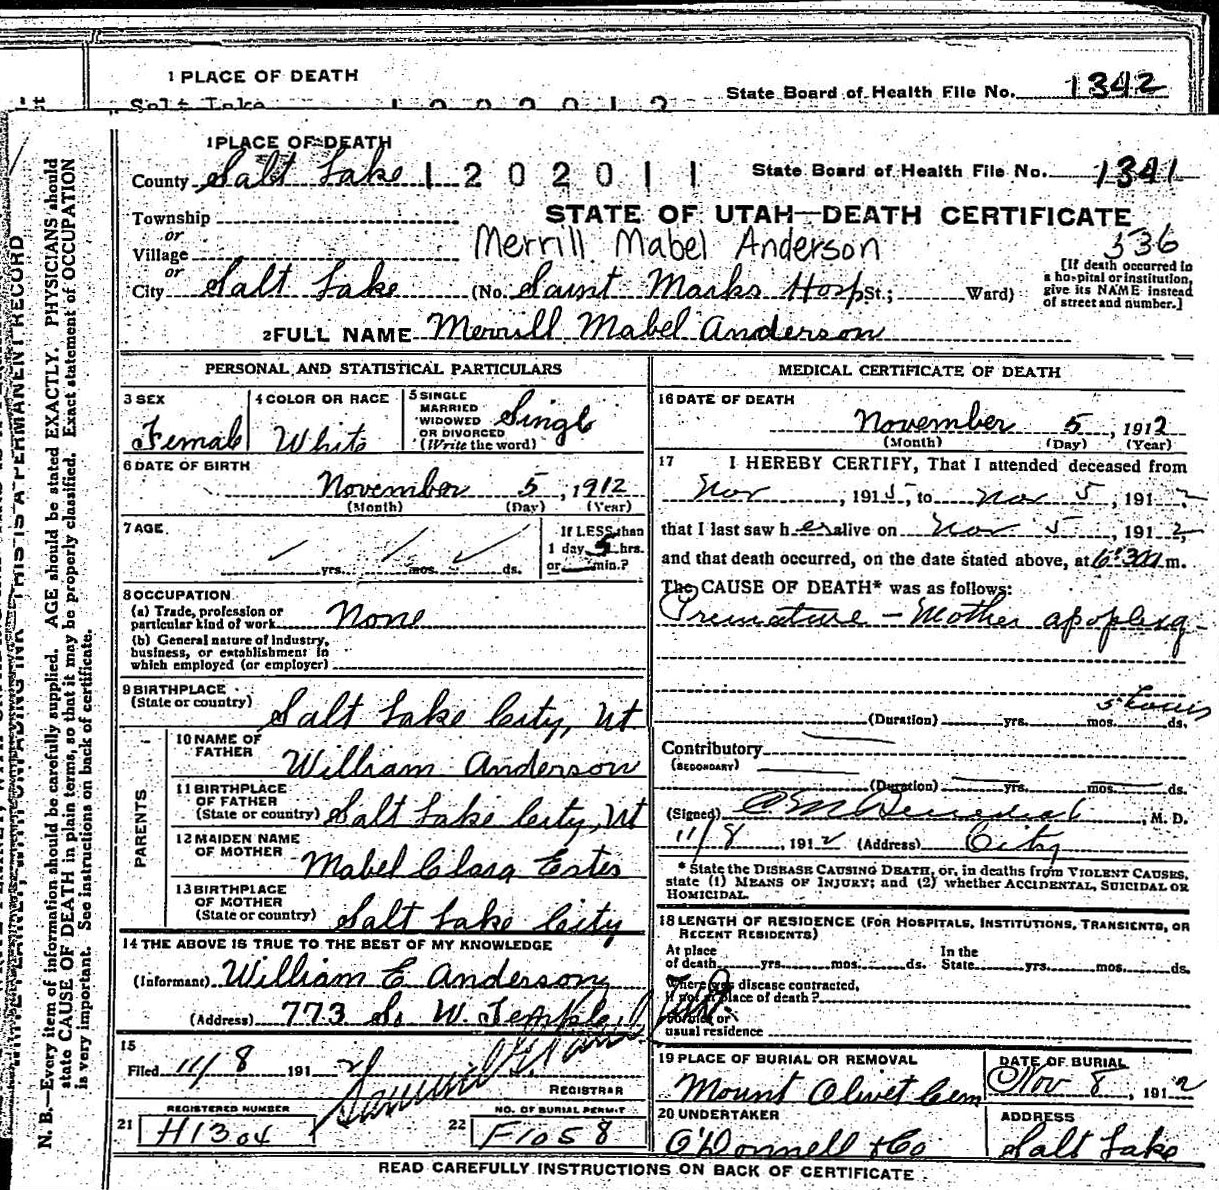 1 PLACE OF DEATH
Salt Lake 1202012
State Board of Health File No. 1342
1 PLACE OF DEATH
County Salt Lake 1202011 State Board of Health File No. 1341
Township
STATE OF UTAH—DEATH CERTIFICATE
or
Village Merrill Mabel Anderson 336
or
City Salt Lake (No. Saint Marks Hosp St.; Ward)
[If death occurred in
a hospital or institution,
give its NAME instead
of street and number.]
2 FULL NAME Merrill Mabel Anderson
PERSONAL AND STATISTICAL PARTICULARS
3 SEX
Female
4 COLOR OR RACE
White
5 SINGLE
MARRIED
WIDOWED
OR DIVORCED
(Write the word)
Single
6 DATE OF BIRTH
November 5, 1912
(Month) (Day) (Year)
7 AGE
yrs. mos. ds.
If LESS than
1 day 5 hrs.
or min.?
8 OCCUPATION
(a) Trade, profession or
particular kind of work None
(b) General nature of industry,
business, or establishment in
which employed (or employer)
9 BIRTHPLACE
(State or country) Salt Lake City, Ut
PARENTS
10 NAME OF
FATHER William Anderson
11 BIRTHPLACE
OF FATHER
(State or country) Salt Lake City, Ut
12 MAIDEN NAME
OF MOTHER Mabel Clara Estes
13 BIRTHPLACE
OF MOTHER
(State or country) Salt Lake City
14 THE ABOVE IS TRUE TO THE BEST OF MY KNOWLEDGE
(Informant) William E Anderson
(Address) 773 So W. Temple
15
Filed 11/8 1912
REGISTRAR
REGISTERED NUMBER
21 H1304
NO. OF BURIAL PERMIT
22 F1058
MEDICAL CERTIFICATE OF DEATH
16 DATE OF DEATH
November 5, 1912
(Month) (Day) (Year)
17 I HEREBY CERTIFY, That I attended deceased from
Nov , 191 5, to Nov 5, 1912
that I last saw her alive on Nov 5, 1912,
and that death occurred, on the date stated above, at m.
The CAUSE OF DEATH* was as follows:
Premature - Mother apoplexy
5 hours
(Duration) yrs. mos. ds.
Contributory
(SECONDARY)
(Duration) yrs. mos. ds.
(Signed) , M. D.
11/8, 1912 (Address) City
* State the DISEASE CAUSING DEATH, or, in deaths from VIOLENT CAUSES,
state (1) MEANS OF INJURY; and (2) whether ACCIDENTAL, SUICIDAL OR
HOMICIDAL.
18 LENGTH OF RESIDENCE (FOR HOSPITALS, INSTITUTIONS, TRANSIENTS, OR
RECENT RESIDENTS)
At place
of death yrs. mos. ds.
In the
State yrs. mos. ds.
Where was disease contracted,
if not at place of death?
Former or
usual residence
19 PLACE OF BURIAL OR REMOVAL
Mount Olivet Cem
DATE OF BURIAL
Nov 8, 1912
20 UNDERTAKER
O'Donnell & Co
ADDRESS
Salt Lake
READ CAREFULLY INSTRUCTIONS ON BACK OF CERTIFICATE
THIS IS A PERMANENT RECORD
N. B.—Every item of information should be carefully supplied. AGE should be stated EXACTLY. PHYSICIANS should
state CAUSE OF DEATH in plain terms, so that it may be properly classified. Exact statement of OCCUPATION
is very important. See instructions on back of certificate.